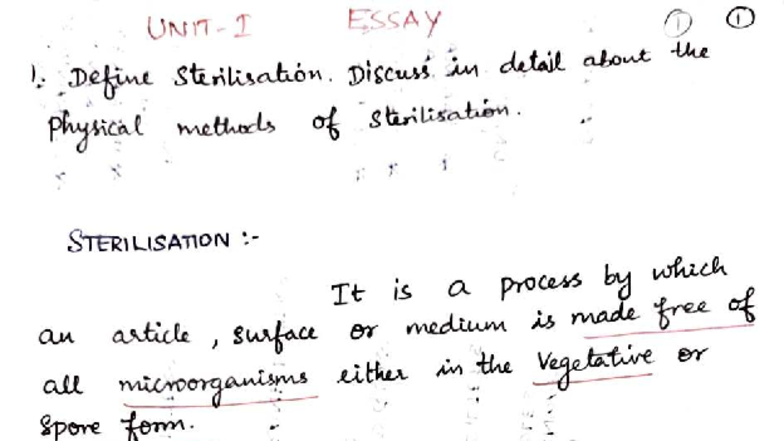 UNIT-I ESSAY ① ①
1. Define Sterilisation. Discuss in detail about the
Physical methods of Sterilisation.
STERILISATION :-
It is a process by which
an article, surface or medium is made free of
all microorganisms either in the vegetative or
spore form.